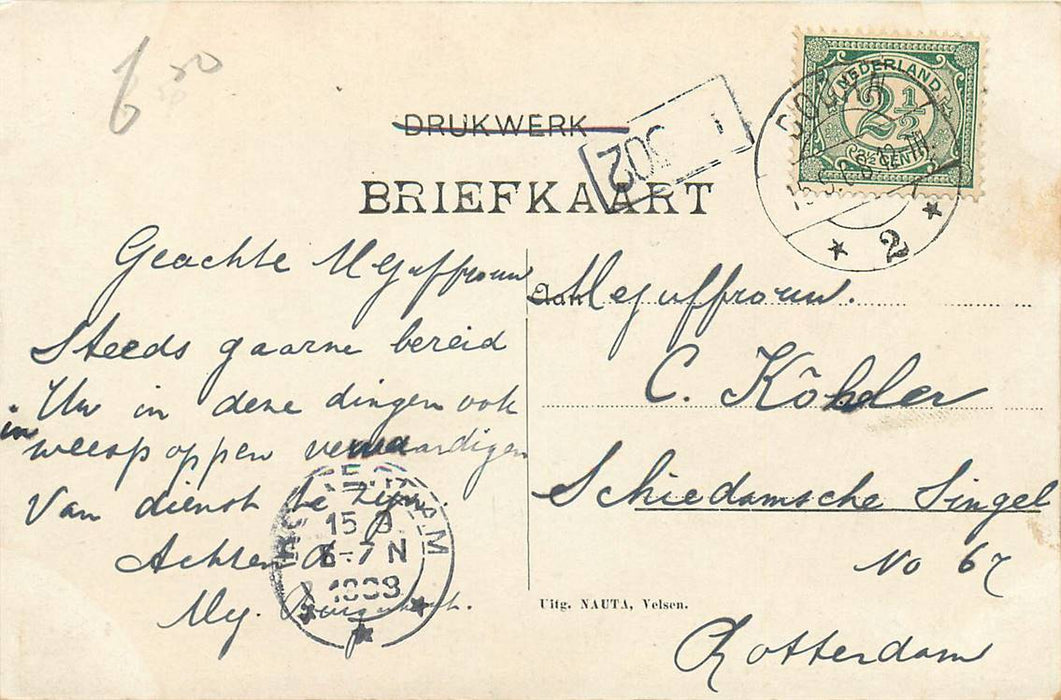 6 50
DRUKWERK
302
NEDERLAND
2 1/2
2½ CENT
2
BRIEFKAART
Geachte Mejuffrouw
Steeds gaarne bereid
Uw in deze dingen ook
in weesp oppen vervaardigen
Van dienst te zijn
Achtend
Mej.
15 8
6-7 N
Aan Mejuffrouw.
C. Köhler
Schiedamsche Singel
No 67
Rotterdam
Uitg. NAUTA, Velsen.